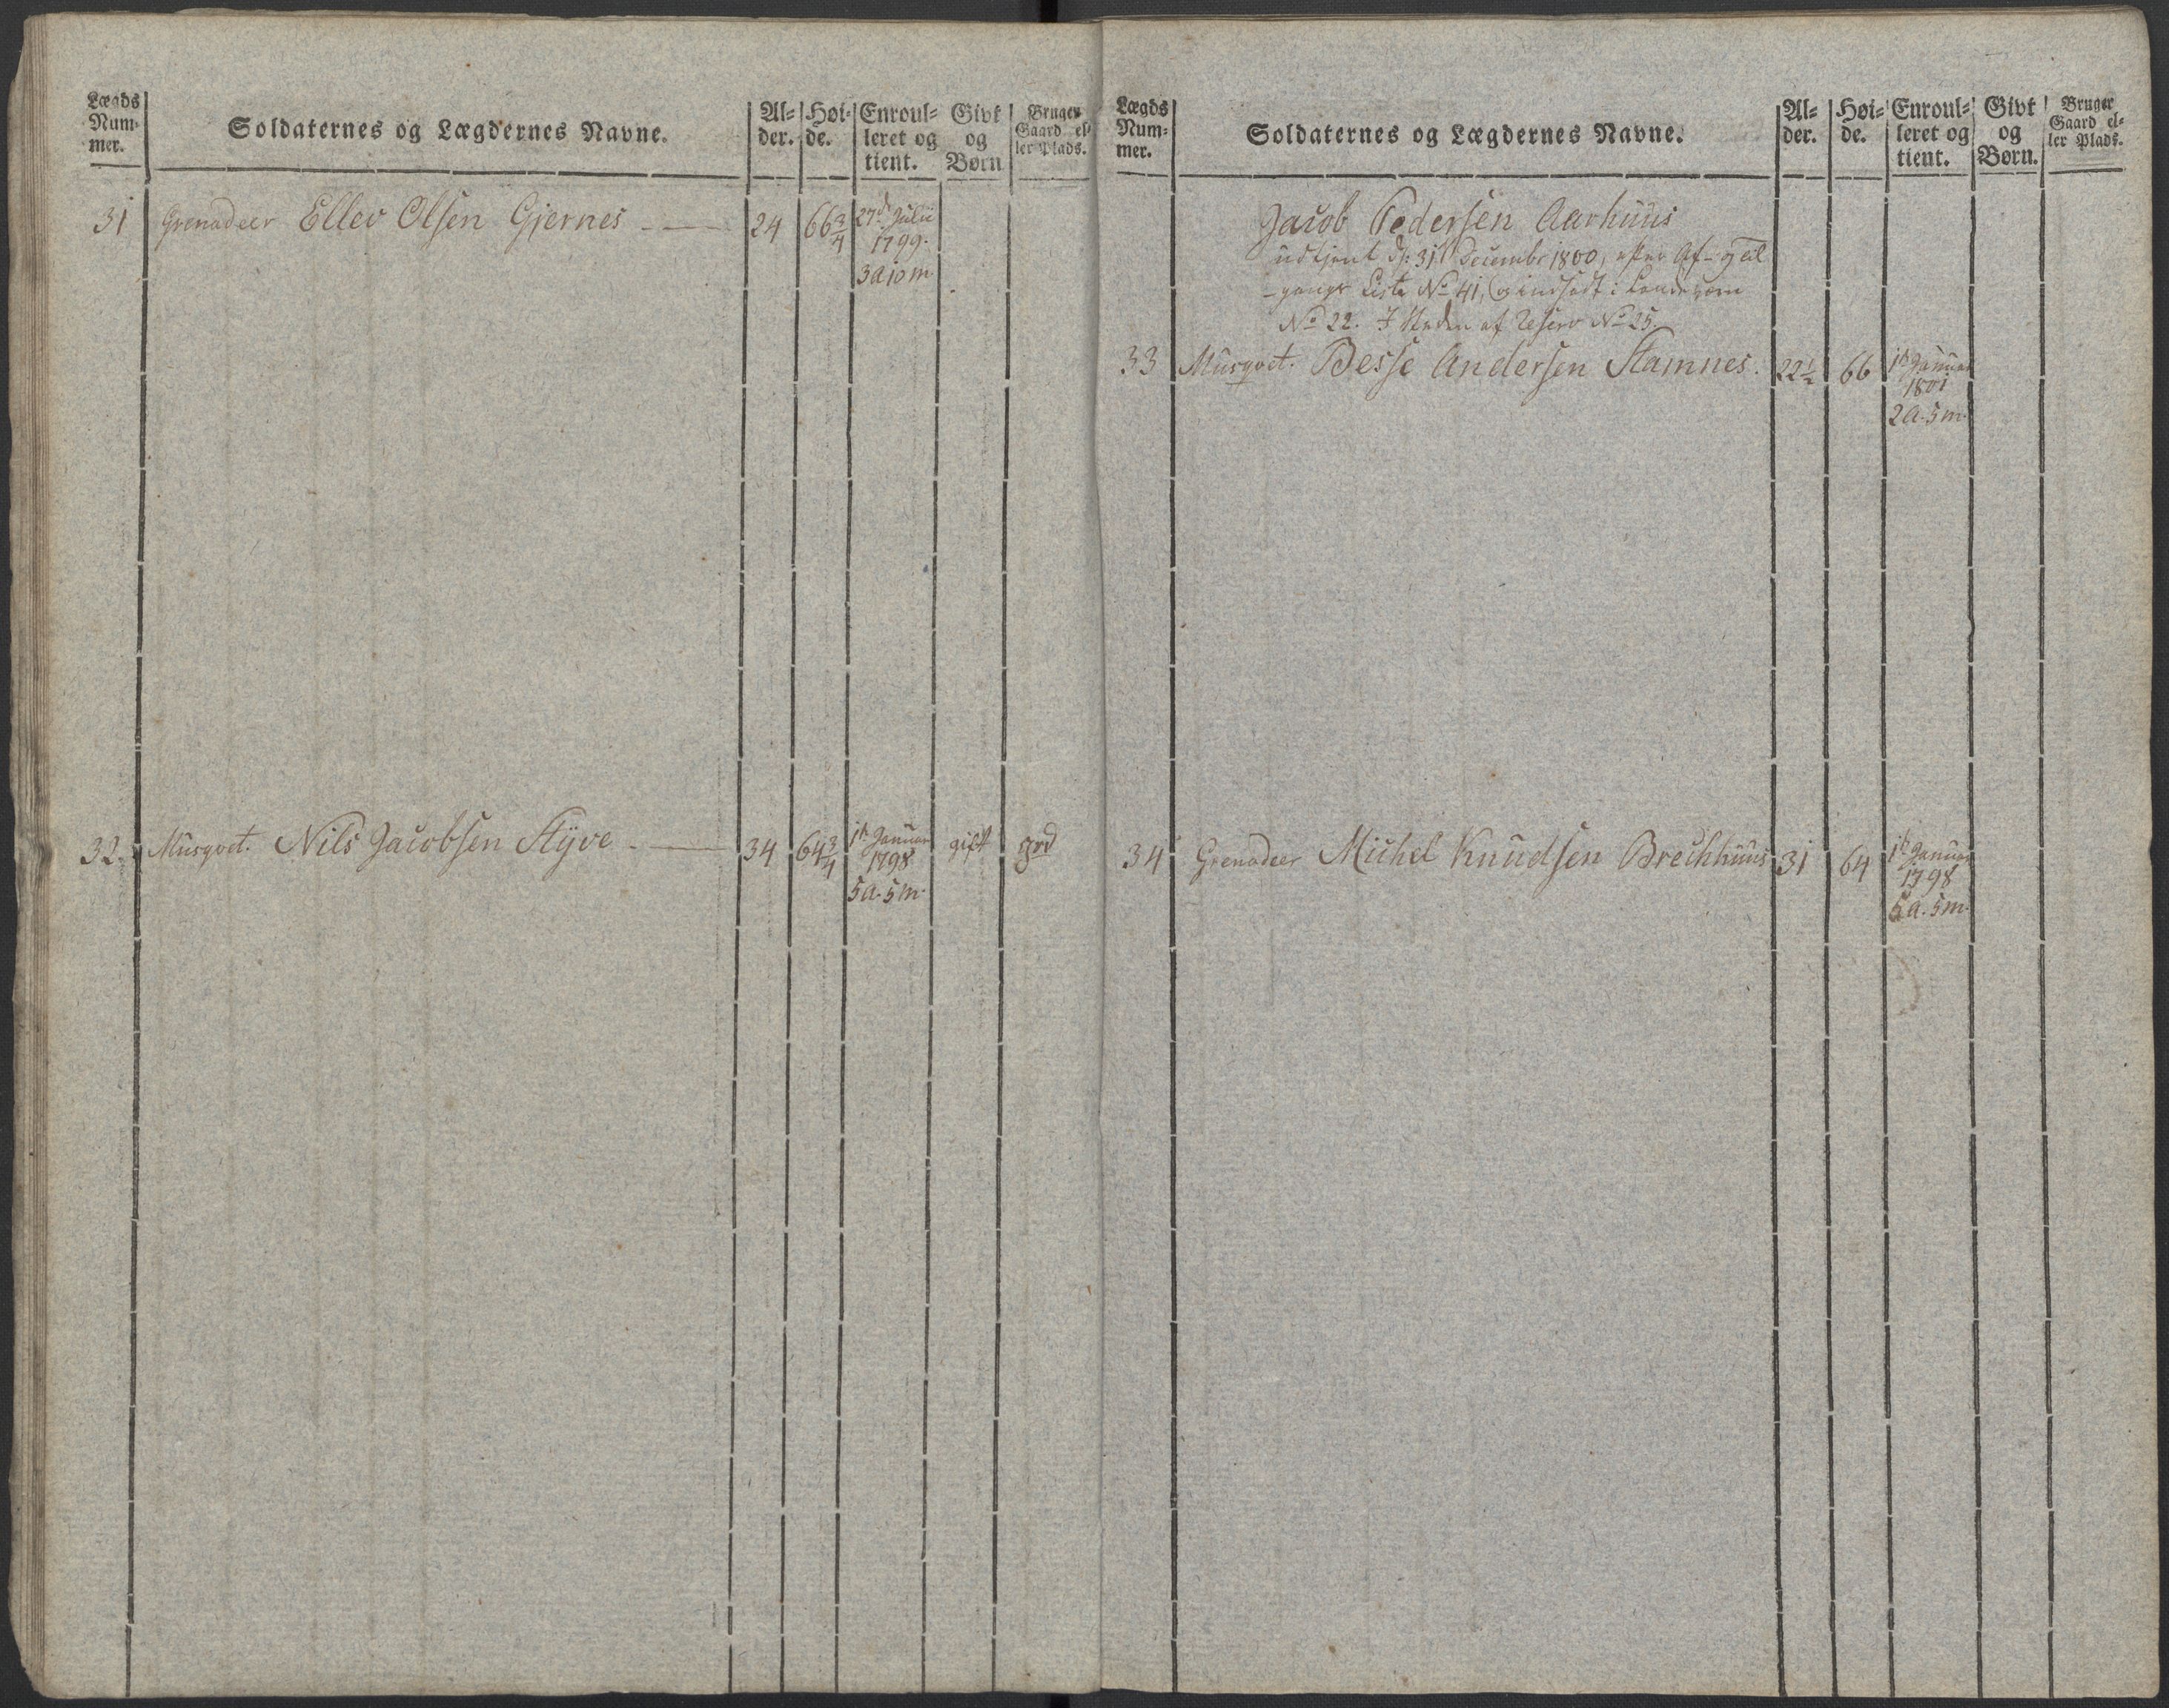 Lægds Num- mer.
Soldaternes og Lægdernes Navne.
Al- der.
Høi- de.
Enroul- leret og tient.
Givt og Børn
Bruger Gaard el- ler Plads.
31 Grenadeer Ellev Olsen Gjernes 24 66 3/4 27d Julii
1799.
3 a 10 m
32. Musqvet. Nils Jacobsen Styve 34 64 3/4 1st Januar gift grd
1798
5 a. 5 m.
Lægds Num- mer.
Soldaternes og Lægdernes Navne.
Al- der.
Høi- de.
Enroul- leret og tient.
Givt og Børn.
Bruger Gaard el- ler Plads.
Jacob Pedersen Aarhuus
udtjent d: 31t Decembr 1800, efter Af- og
-gangs Liste No 41, og indsadt i Landeværn
No 22. I Steden af Reserv No 25.
33 Musqvet. Besse Andersen Stamnes. 22 1/2 66 1st Januar
1801
2 a. 5 m.
34 Grenadeer Michel Knudsen Brechhuus 31 64 1st Januar
1798
5 a. 5 m.